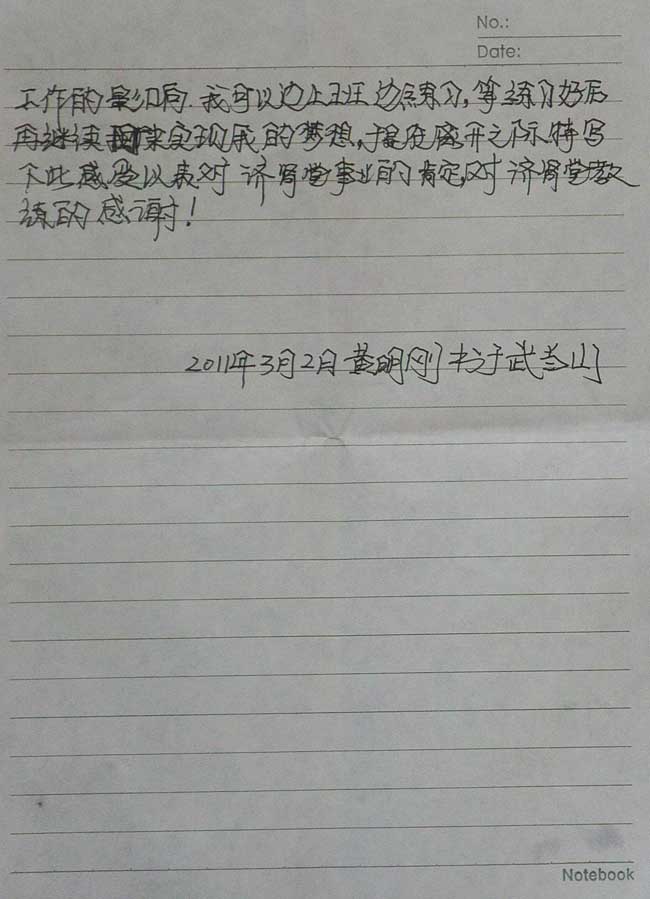 No.:
Date:
工作的影响. 我可以边上班边练习, 等练习好后
再继续来实现我的梦想, 在离开之际特写
下此感受以表对济骨堂事业的肯定, 对济骨堂教
练的感谢!
2011年3月2日黄明刚书于武当山
Notebook